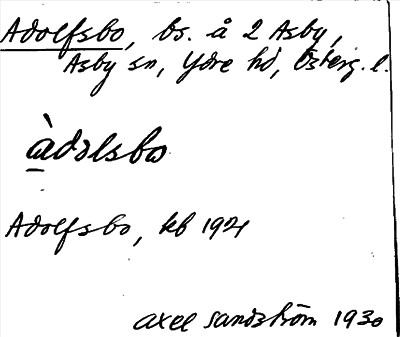 Adolfsbo, bs. å 2 Asby,
Asby sn, Ydre hd, Österg. l.
àdɔlsbω
Adolfsbo, kb 1921
Axel Sandström 1930